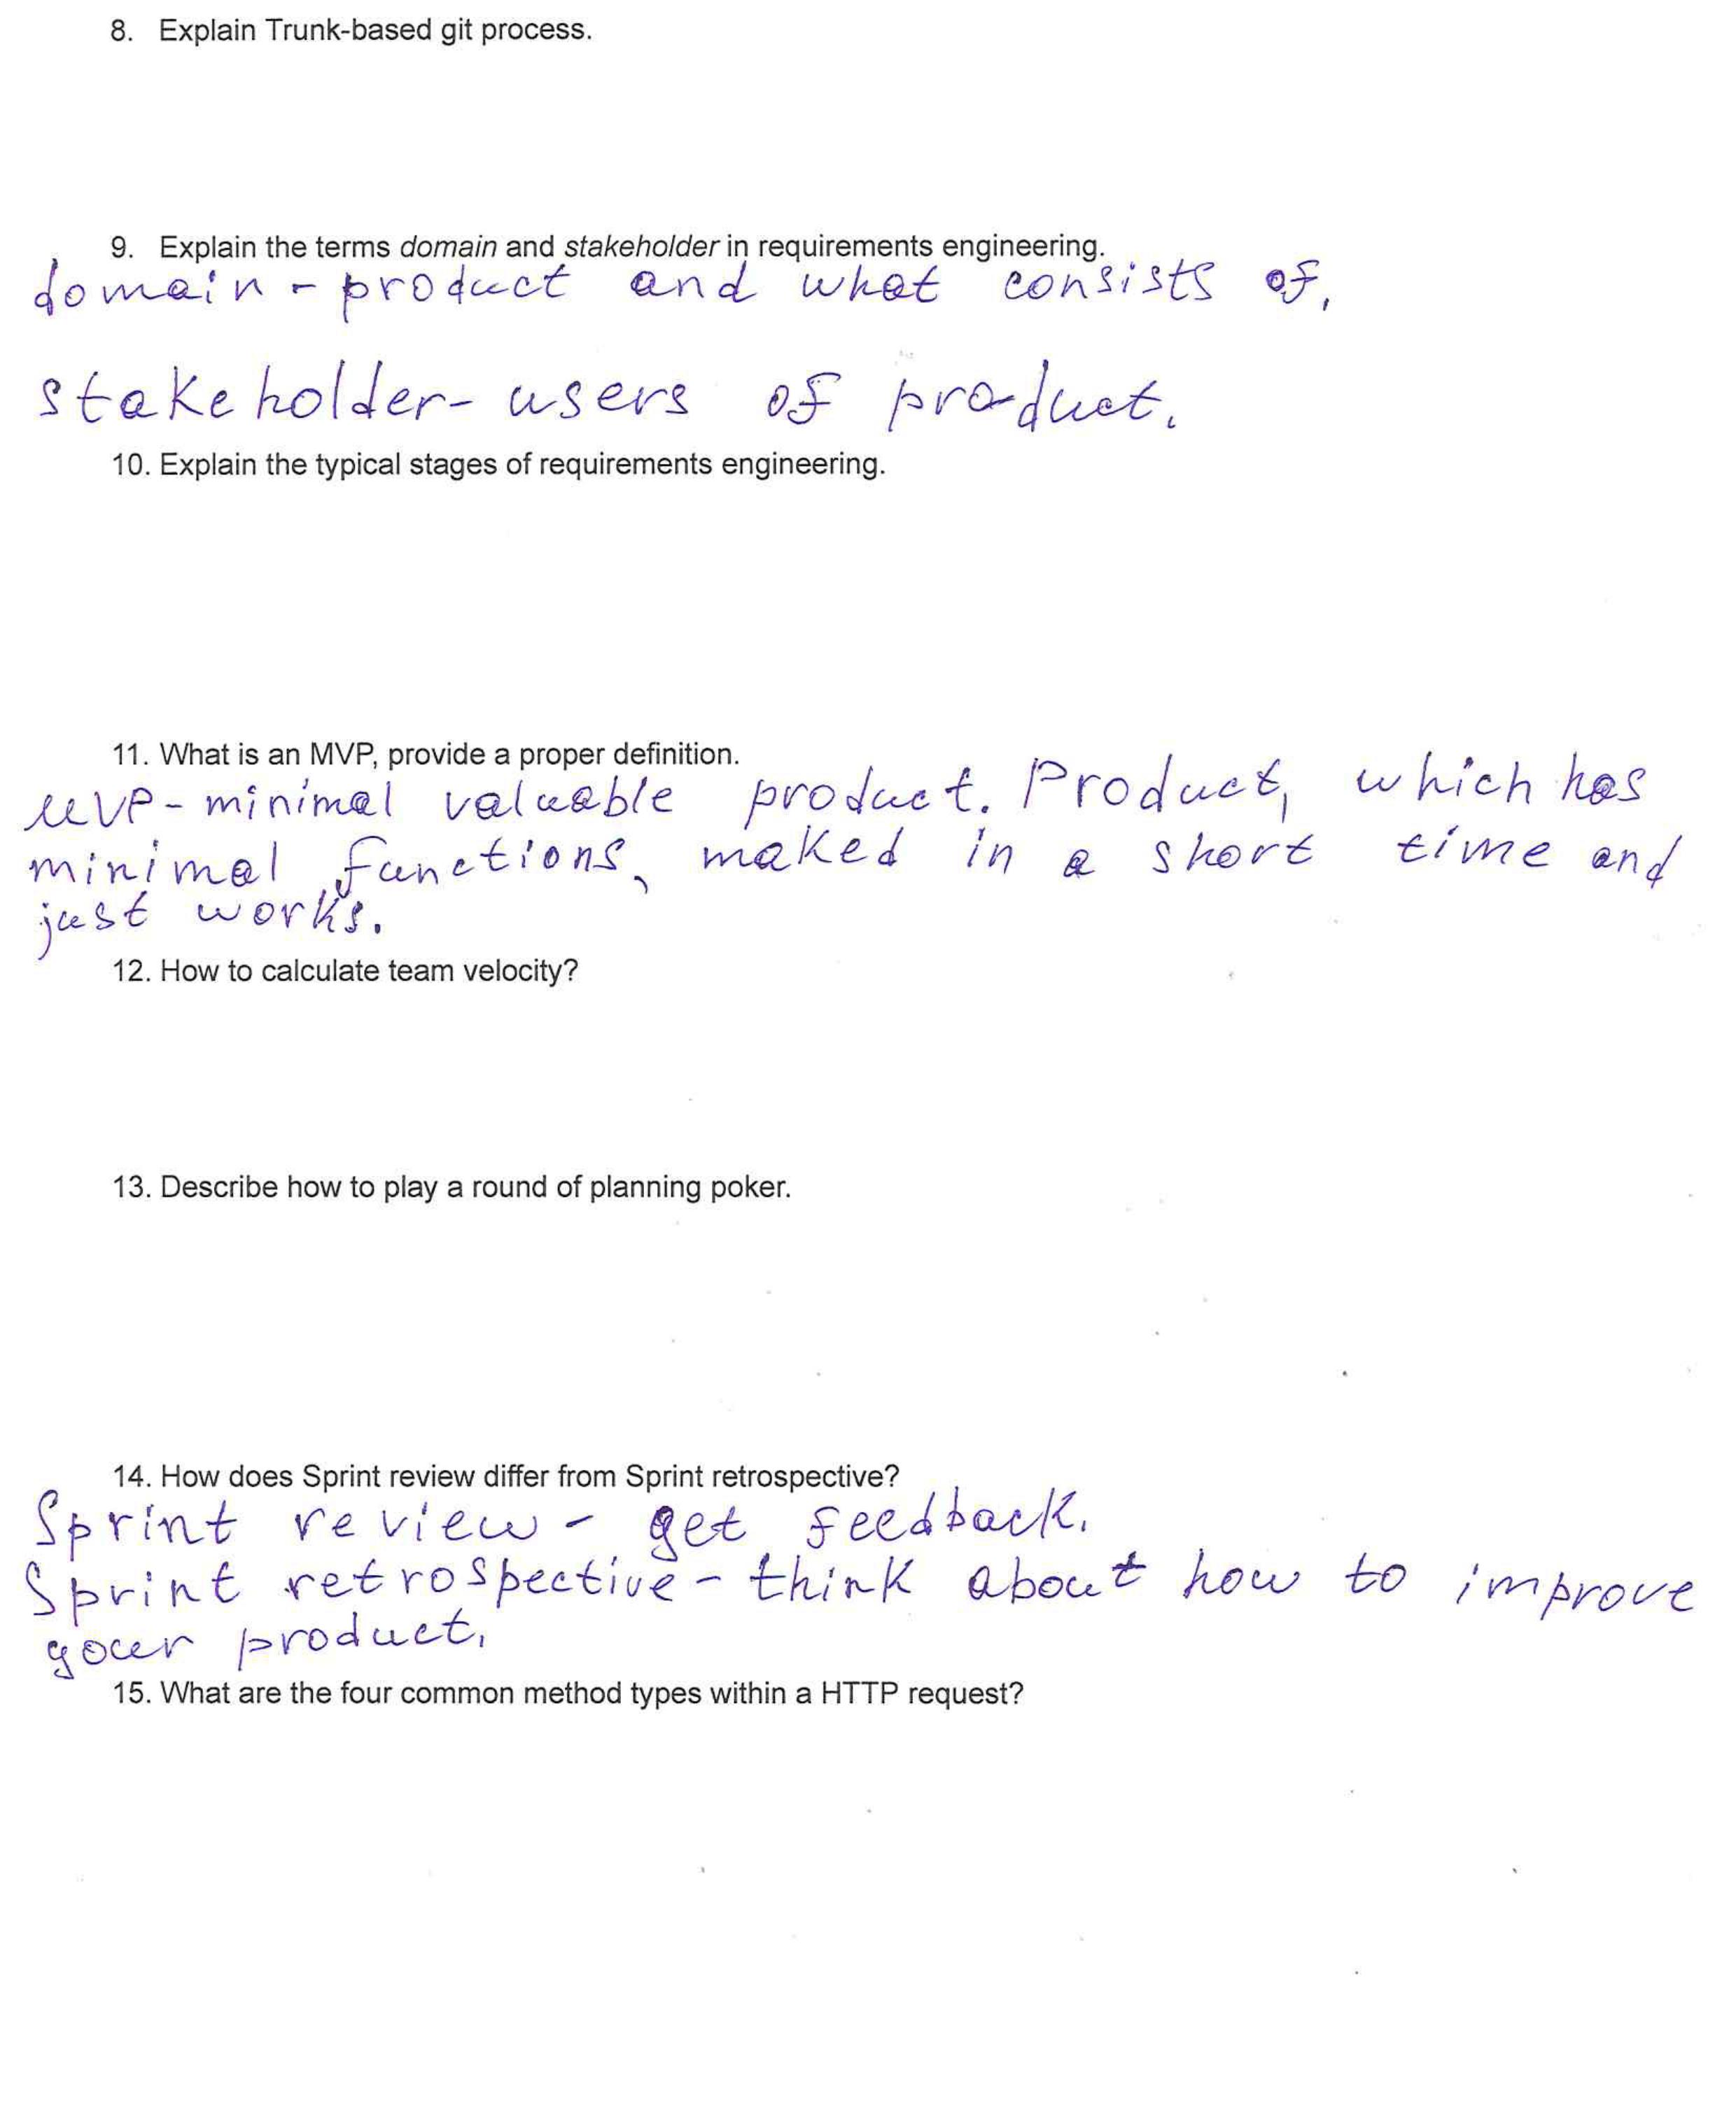 8. Explain Trunk-based git process.
9. Explain the terms domain and stakeholder in requirements engineering.
domain - product and what consists of.
stakeholder - users of product.
10. Explain the typical stages of requirements engineering.
11. What is an MVP, provide a proper definition.
MVP - minimal valuable product. Product, which has
minimal functions, maked in a short time and
just works.
12. How to calculate team velocity?
13. Describe how to play a round of planning poker.
14. How does Sprint review differ from Sprint retrospective?
Sprint review - get feedback.
Sprint retrospective - think about how to improve
your product.
15. What are the four common method types within a HTTP request?